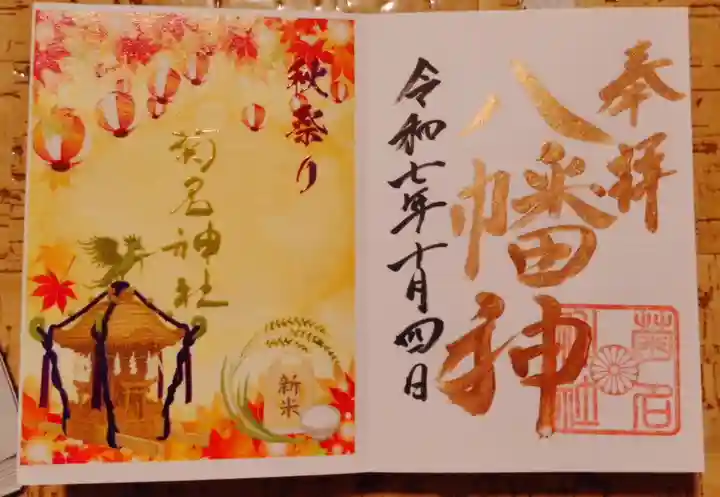 奉拝
八幡神
令和七年十月四日
菊名
神社
秋祭り
菊名神社
新米